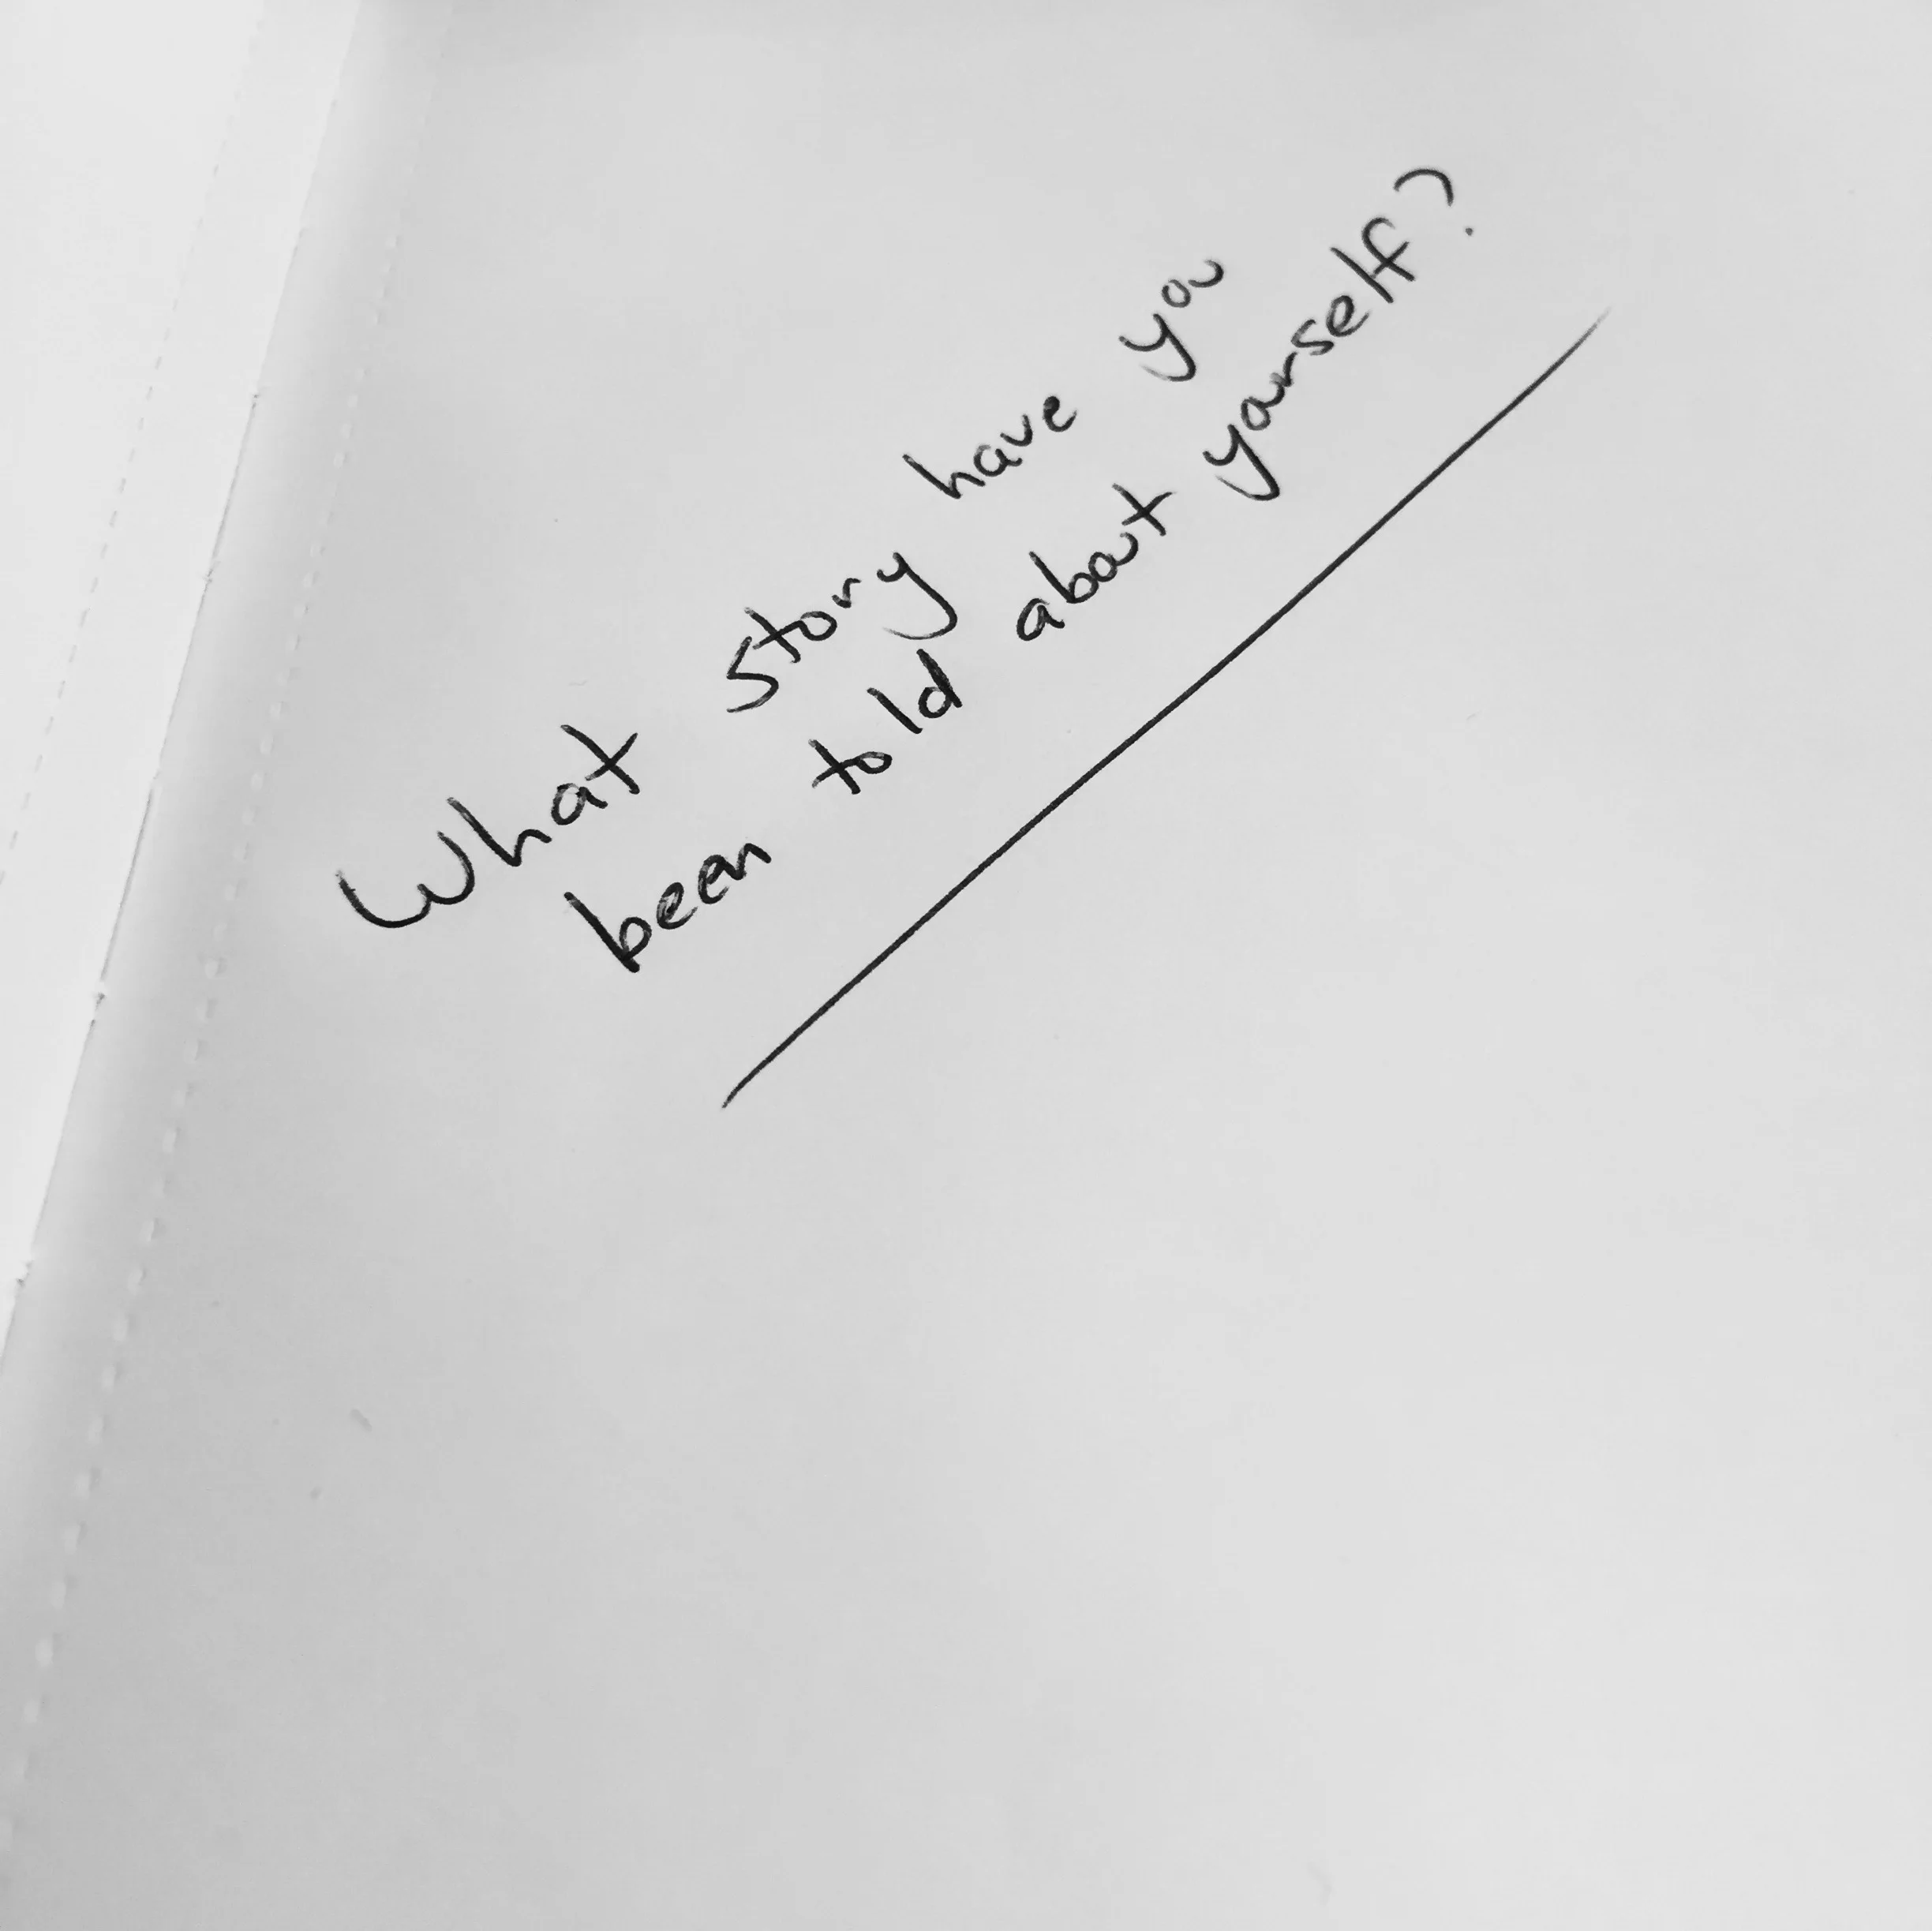 What story have you
been told about yourself?